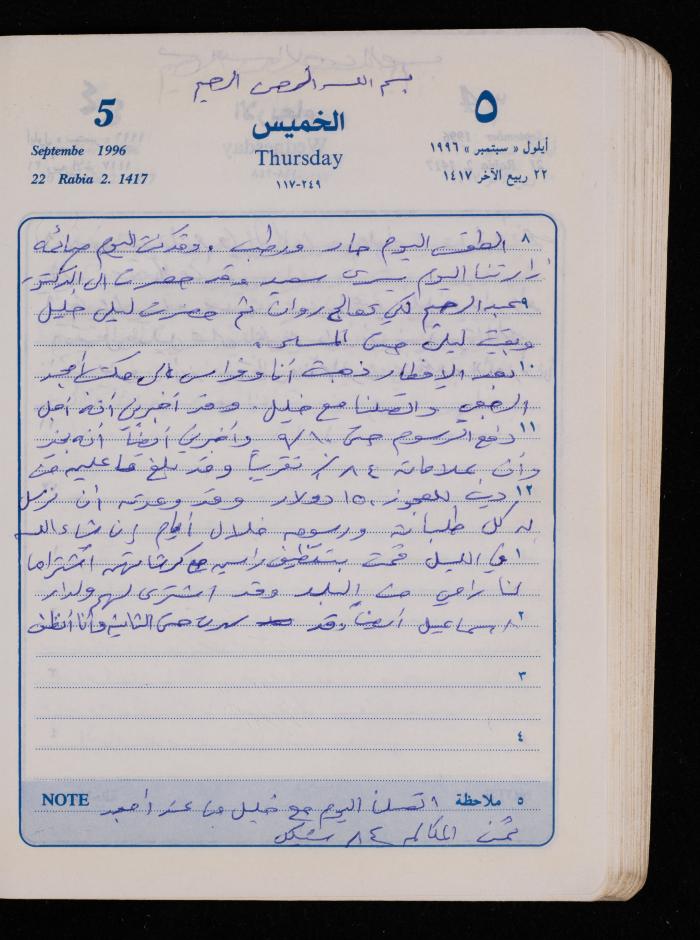 بسم الله الرحمن الرحيم
5
الخميس
٥
Septembe 1996
Thursday
أيلول « سبتمبر » ١٩٩٦
22 Rabia 2. 1417
٢٤٩-١١٧
٢٢ ربيع الآخر ١٤١٧
٨ الطقس اليوم حار ورطب . وقد كنت اليوم صائمة
زارتنا اليوم يسرى سعيد وقد حضرت الى الدكتور
٩ عبد الرحيم لكي تعالج روان ثم حضرت ليلى خليل
وبقيت ليلى حتى المساء .
١٠ بعد الإفطار ذهبت أنا وفراس الى مكتب أمجد
واتصلنا مع خليل . وقد أخبرني أنه أجل
١١ دفع الرسوم حتى ٩/١٠ وأخبرني أيضاً أنه بخير
وأن علاماته ٨٤٪ تقريباً وقد بلغ ما عليه من
١٢ دين للعجوز ١٥٠ دولار وقد وعدته أن نرسل
له كل طلباته ورسومه خلال أيام إن شاء الله
١ في الليل قمت بتنظيف راسين مع كرشاتهم اشتراها
لنا رامي من البلد وقد اشترى لهم ولدار
٢ اسماعيل أيضاً وقد سهرت حتى الثانية وأنا أنظف
٣
٤
NOTE
٥ ملاحظة اتصلنا اليوم مع خليل من عند أمجد
ثمن المكالمة ٨٤ شيكل